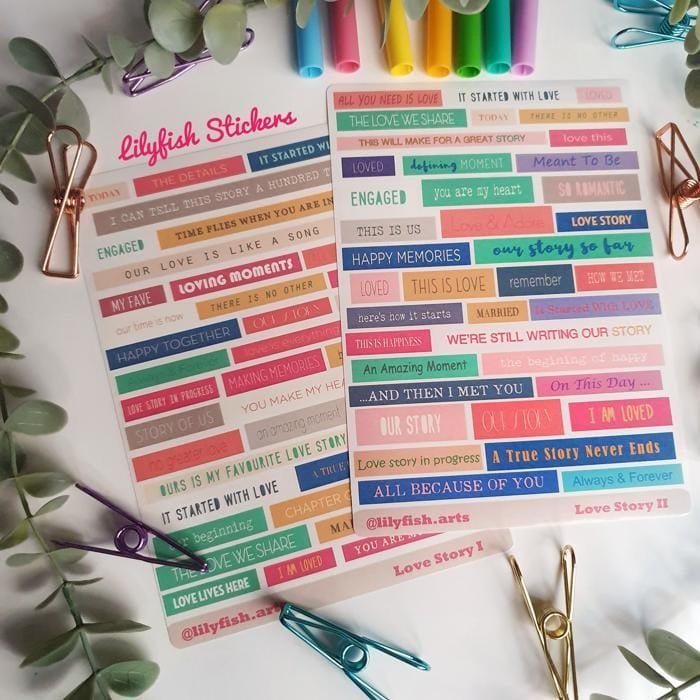 lilyfish Stickers
TODAY
THE DETAILS
IT STARTED WI
I CAN TELL THIS STORY A HUNDRED T
ENGAGED
TIME FLIES WHEN YOU ARE IN
OUR LOVE IS LIKE A SONG
MY FAVE
LOVING MOMENTS
our time is now
THERE IS NO OTHER
HAPPY TOGETHER
OUR STORY
love is everything
LOVE STORY IN PROGRESS
MAKING MEMORIES
STORY OF US
YOU MAKE MY HEA
no greater love
an amazing moment
OURS IS MY FAVOURITE LOVE STORY
IT STARTED WITH LOVE
A TRUE
our beginning
CHAPTER
THE LOVE WE SHARE
MA
LOVE LIVES HERE
I AM LOVED
YOU ARE M
@lilyfish.arts
Love Story I
ALL YOU NEED IS LOVE
IT STARTED WITH LOVE
LOVED
THE LOVE WE SHARE
TODAY
THERE IS NO OTHER
THIS WILL MAKE FOR A GREAT STORY
love this
LOVED
defining MOMENT
Meant To Be
ENGAGED
you are my heart
SO ROMANTIC
THIS IS US
Love & Adore
LOVE STORY
HAPPY MEMORIES
our story so far
LOVED
THIS IS LOVE
remember
HOW WE MET
here's how it starts
MARRIED
It Started With LOVE
THIS IS HAPPINESS
WE'RE STILL WRITING OUR STORY
An Amazing Moment
the begining of happy
...AND THEN I MET YOU
On This Day ...
OUR STORY
OUR STORY
I AM LOVED
Love story in progress
A True Story Never Ends
ALL BECAUSE OF YOU
Always & Forever
@lilyfish.arts
Love Story II